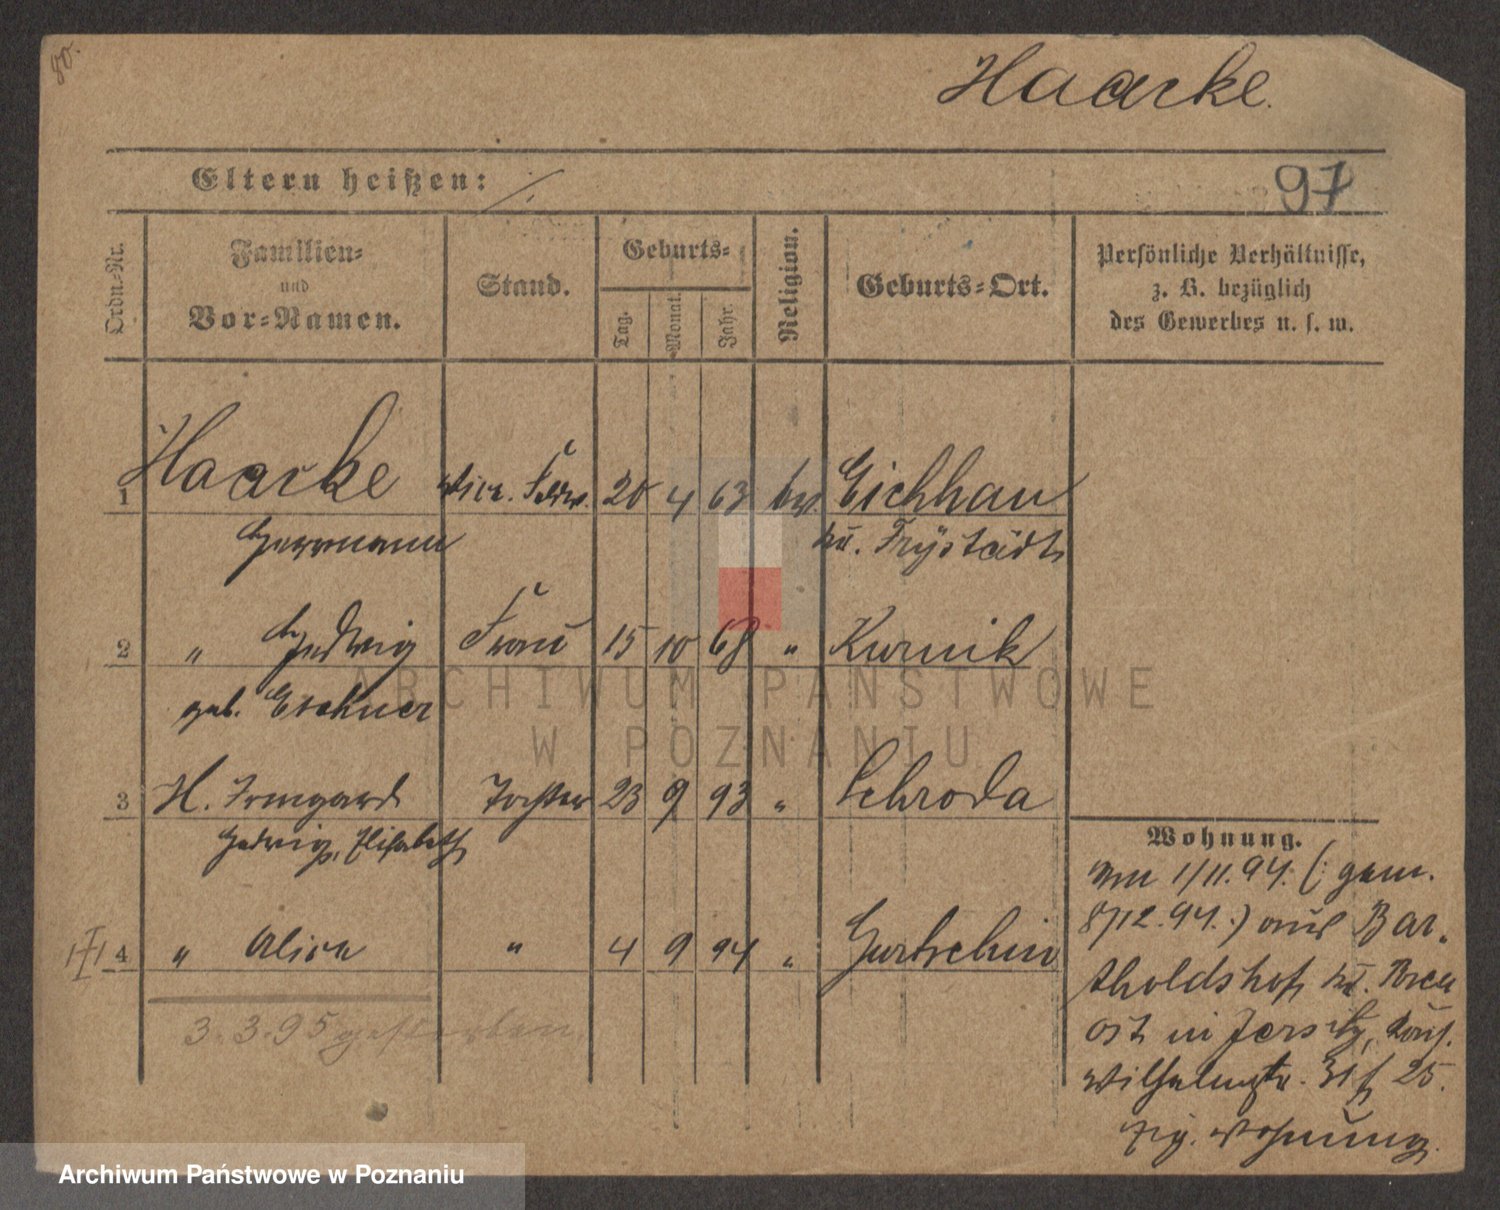 80.
Haacke.
Eltern heißen:
97
Ordn.-Nr.
Familien-
und
Vor-Namen.
Stand.
Geburts-
Tag.
Monat.
Jahr.
Religion.
Geburts-Ort.
Persönliche Verhältnisse,
z. B. bezüglich
des Gewerbes u. s. w.
1 Haacke 20 4 63 Eichhau
Herrmann Kr. Freystadt
2 " Hedwig Frau 15 10 68 " Kurnik
geb.
3 H. Irmgard Tochter 23 9 93 " Schroda
Hedwig, Elisabeth
4 " Alice " 4 9 94 "
3.3.95 gestorben
Wohnung.
Am 1/11.94. (: gem.
8/12.94.:) aus Bar-
tholdshof Kr. Posen
Ost in Jersitz,
Wilhelmstr. 25.
Wohnung.
ARCHIWUM PAŃSTWOWE
W POZNANIU
Archiwum Państwowe w Poznaniu